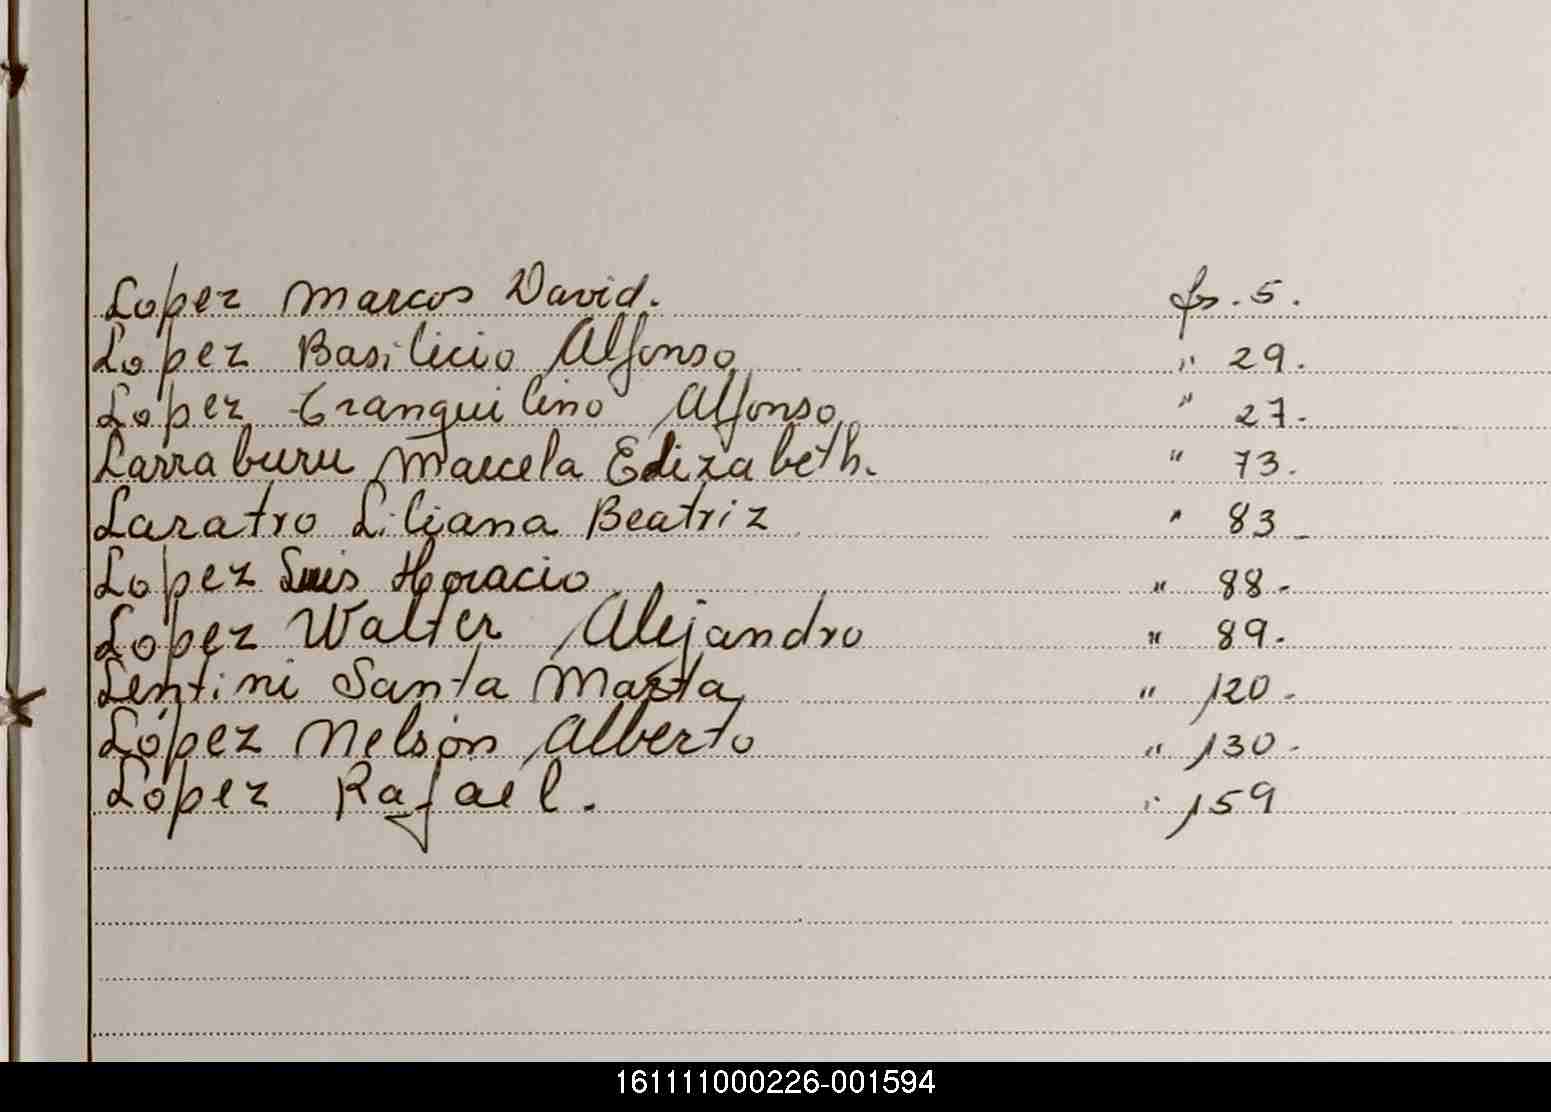 Lopez Marcos David. fs. 5.
Lopez Basilicio Alfonso " 29.
Lopez Tranquilino Alfonso " 27.
Larraburu Marcela Elizabeth. " 73.
Laratro Liliana Beatriz " 83
Lopez Luis Horacio " 88.
Lopez Walter Alejandro " 89.
Lentini Santa Marta " 120.
López Nelson Alberto " 130.
Lopez Rafael. " 159
161111000226-001594